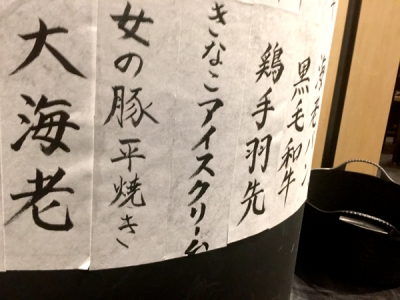 海老パン
黒毛和牛
鶏手羽先
きなこアイスクリーム
女の豚平焼き
大海老